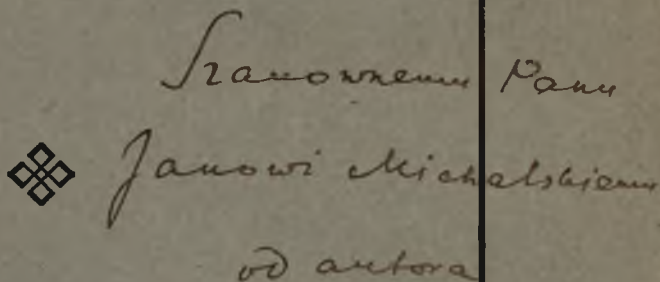 Szanownemu Panu
Janowi Michalskiemu
od autora